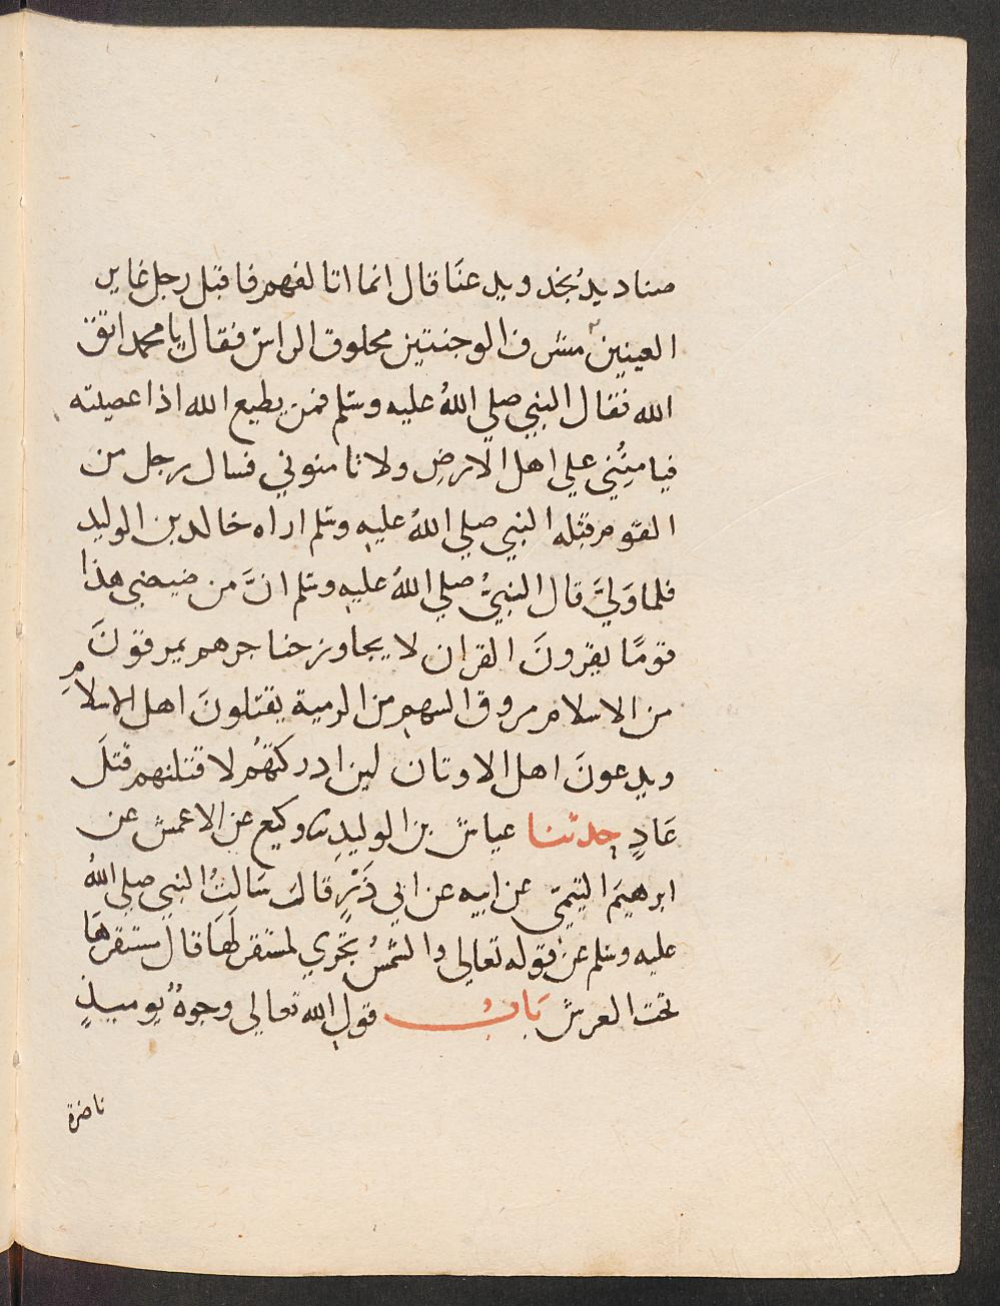 صناديد نجد ويدعنَا قال انما اتالفهم فاقبل رجل غاير
العينين مشرف الوجنتين محلوق الراس فقال يا محمد اتق
الله فقال النبي صلي اللهُ عليه وسلم فمن يطيع الله اذا عصيته
فيامنُني علي اهل الارضِ ولا تامنوني فسال رجل من
القوم قتله النبي صلي اللهُ عليه وسلم اراه خالد بن الوليد
فلما وَليَّ قال النبيُّ صلي اللهُ عليه وسلم انَّ من ضيضي هذا
قومًا يقرونَ القران لا يجاوز حناجرهم يمرقونَ
من الاسلام مروق السهم من الرمية يقتلونَ اهل الاسلامِ
ويدعونَ اهل الاوتان لين ادركتهُم لاقتلنهم قتلَ
عَادٍ حدثنا عياش بن الوليدِ ثنا وكيع عن الاعمش عن
ابرهيمَ التيمي عن ابيه عن ابي ذَرٍّ قال سَالتُ النبي صلي اللهُ
عليه وسلم عن قوله تعالي والشمسُ تجَري لمستقر لَهَا قال مستقرهَا
تحت العرش بَابُ قولِ الله تعالي وجوهٌ يوميذٍ
ناضرة